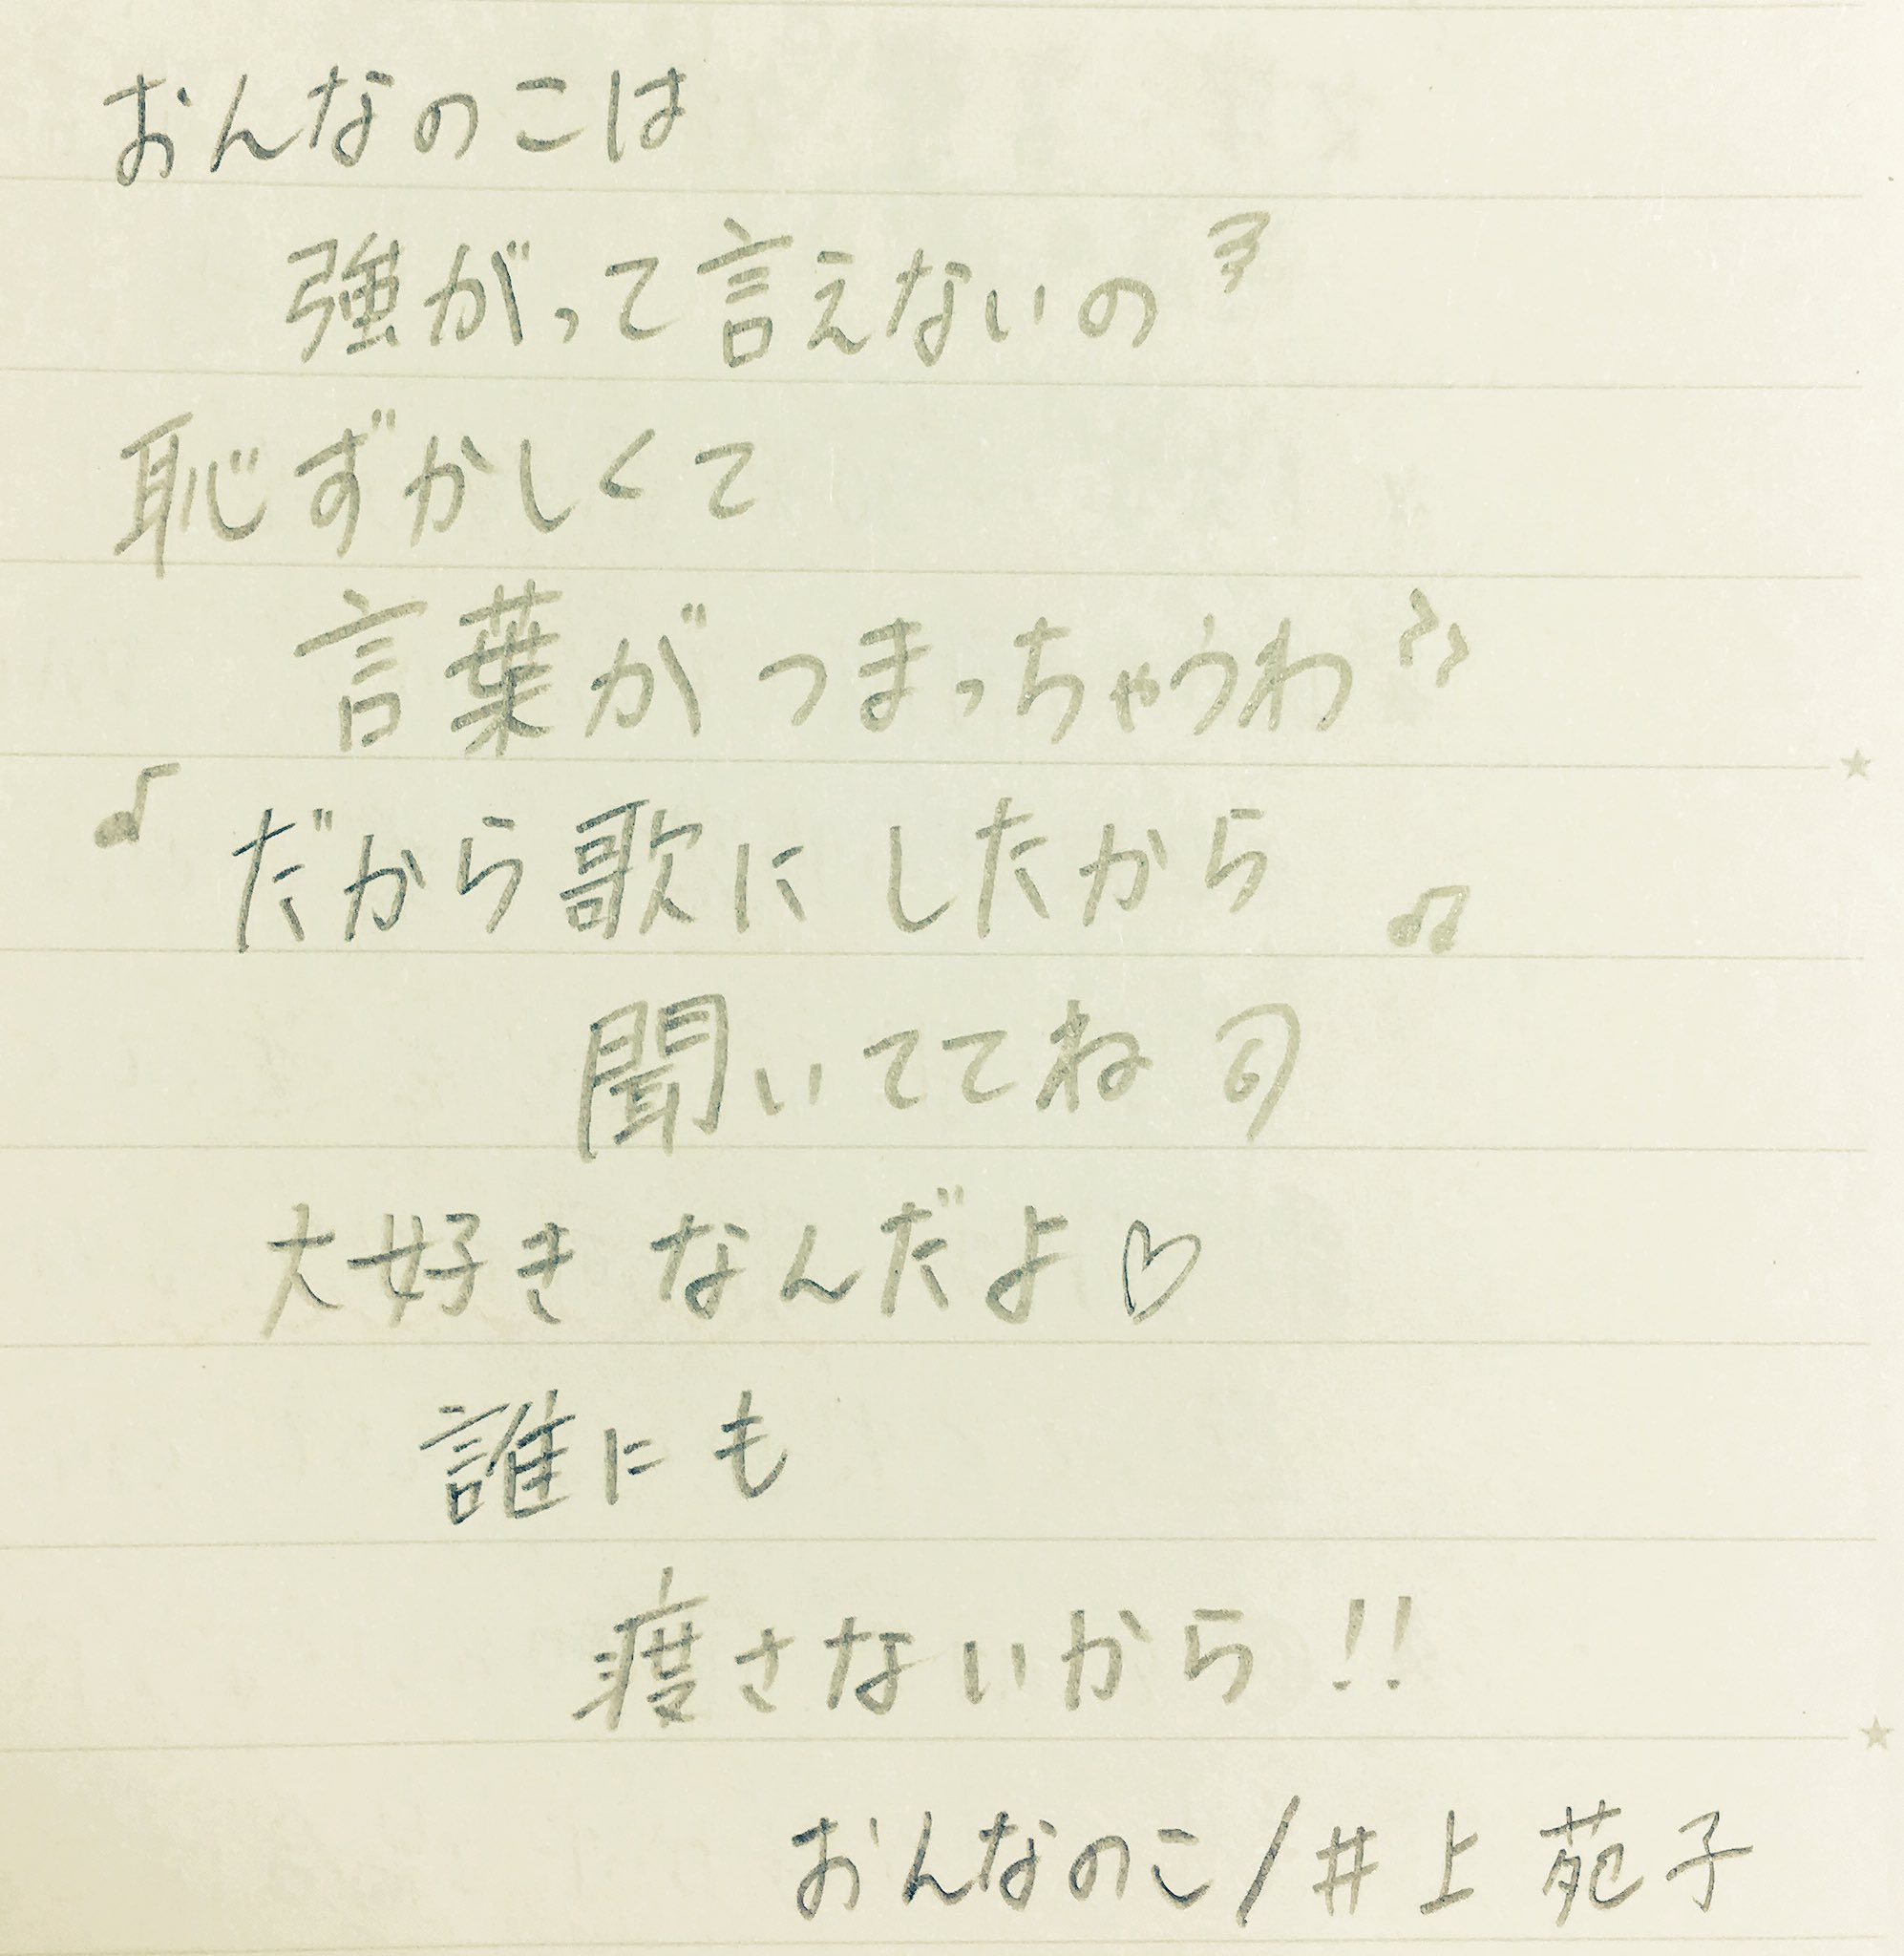 おんなのこは
強がって言えないの
恥ずかしくて
言葉がつまっちゃうわ
♪だから歌にしたから♫
聞いててね
大好きなんだよ♡
誰にも
渡さないから!!
おんなのこ/井上苑子